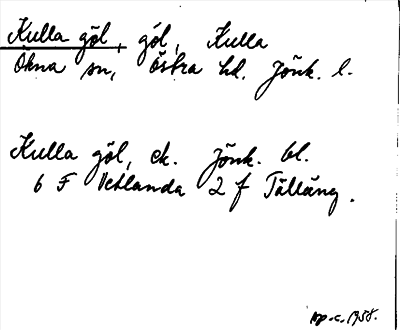 Kulla göl, göl, Kulla
Ökna sn, Östra hd. Jönk. l.
Kulla göl, ek. Jönk. bl.
6 F Vetlanda 2 f Tälläng.
1958.